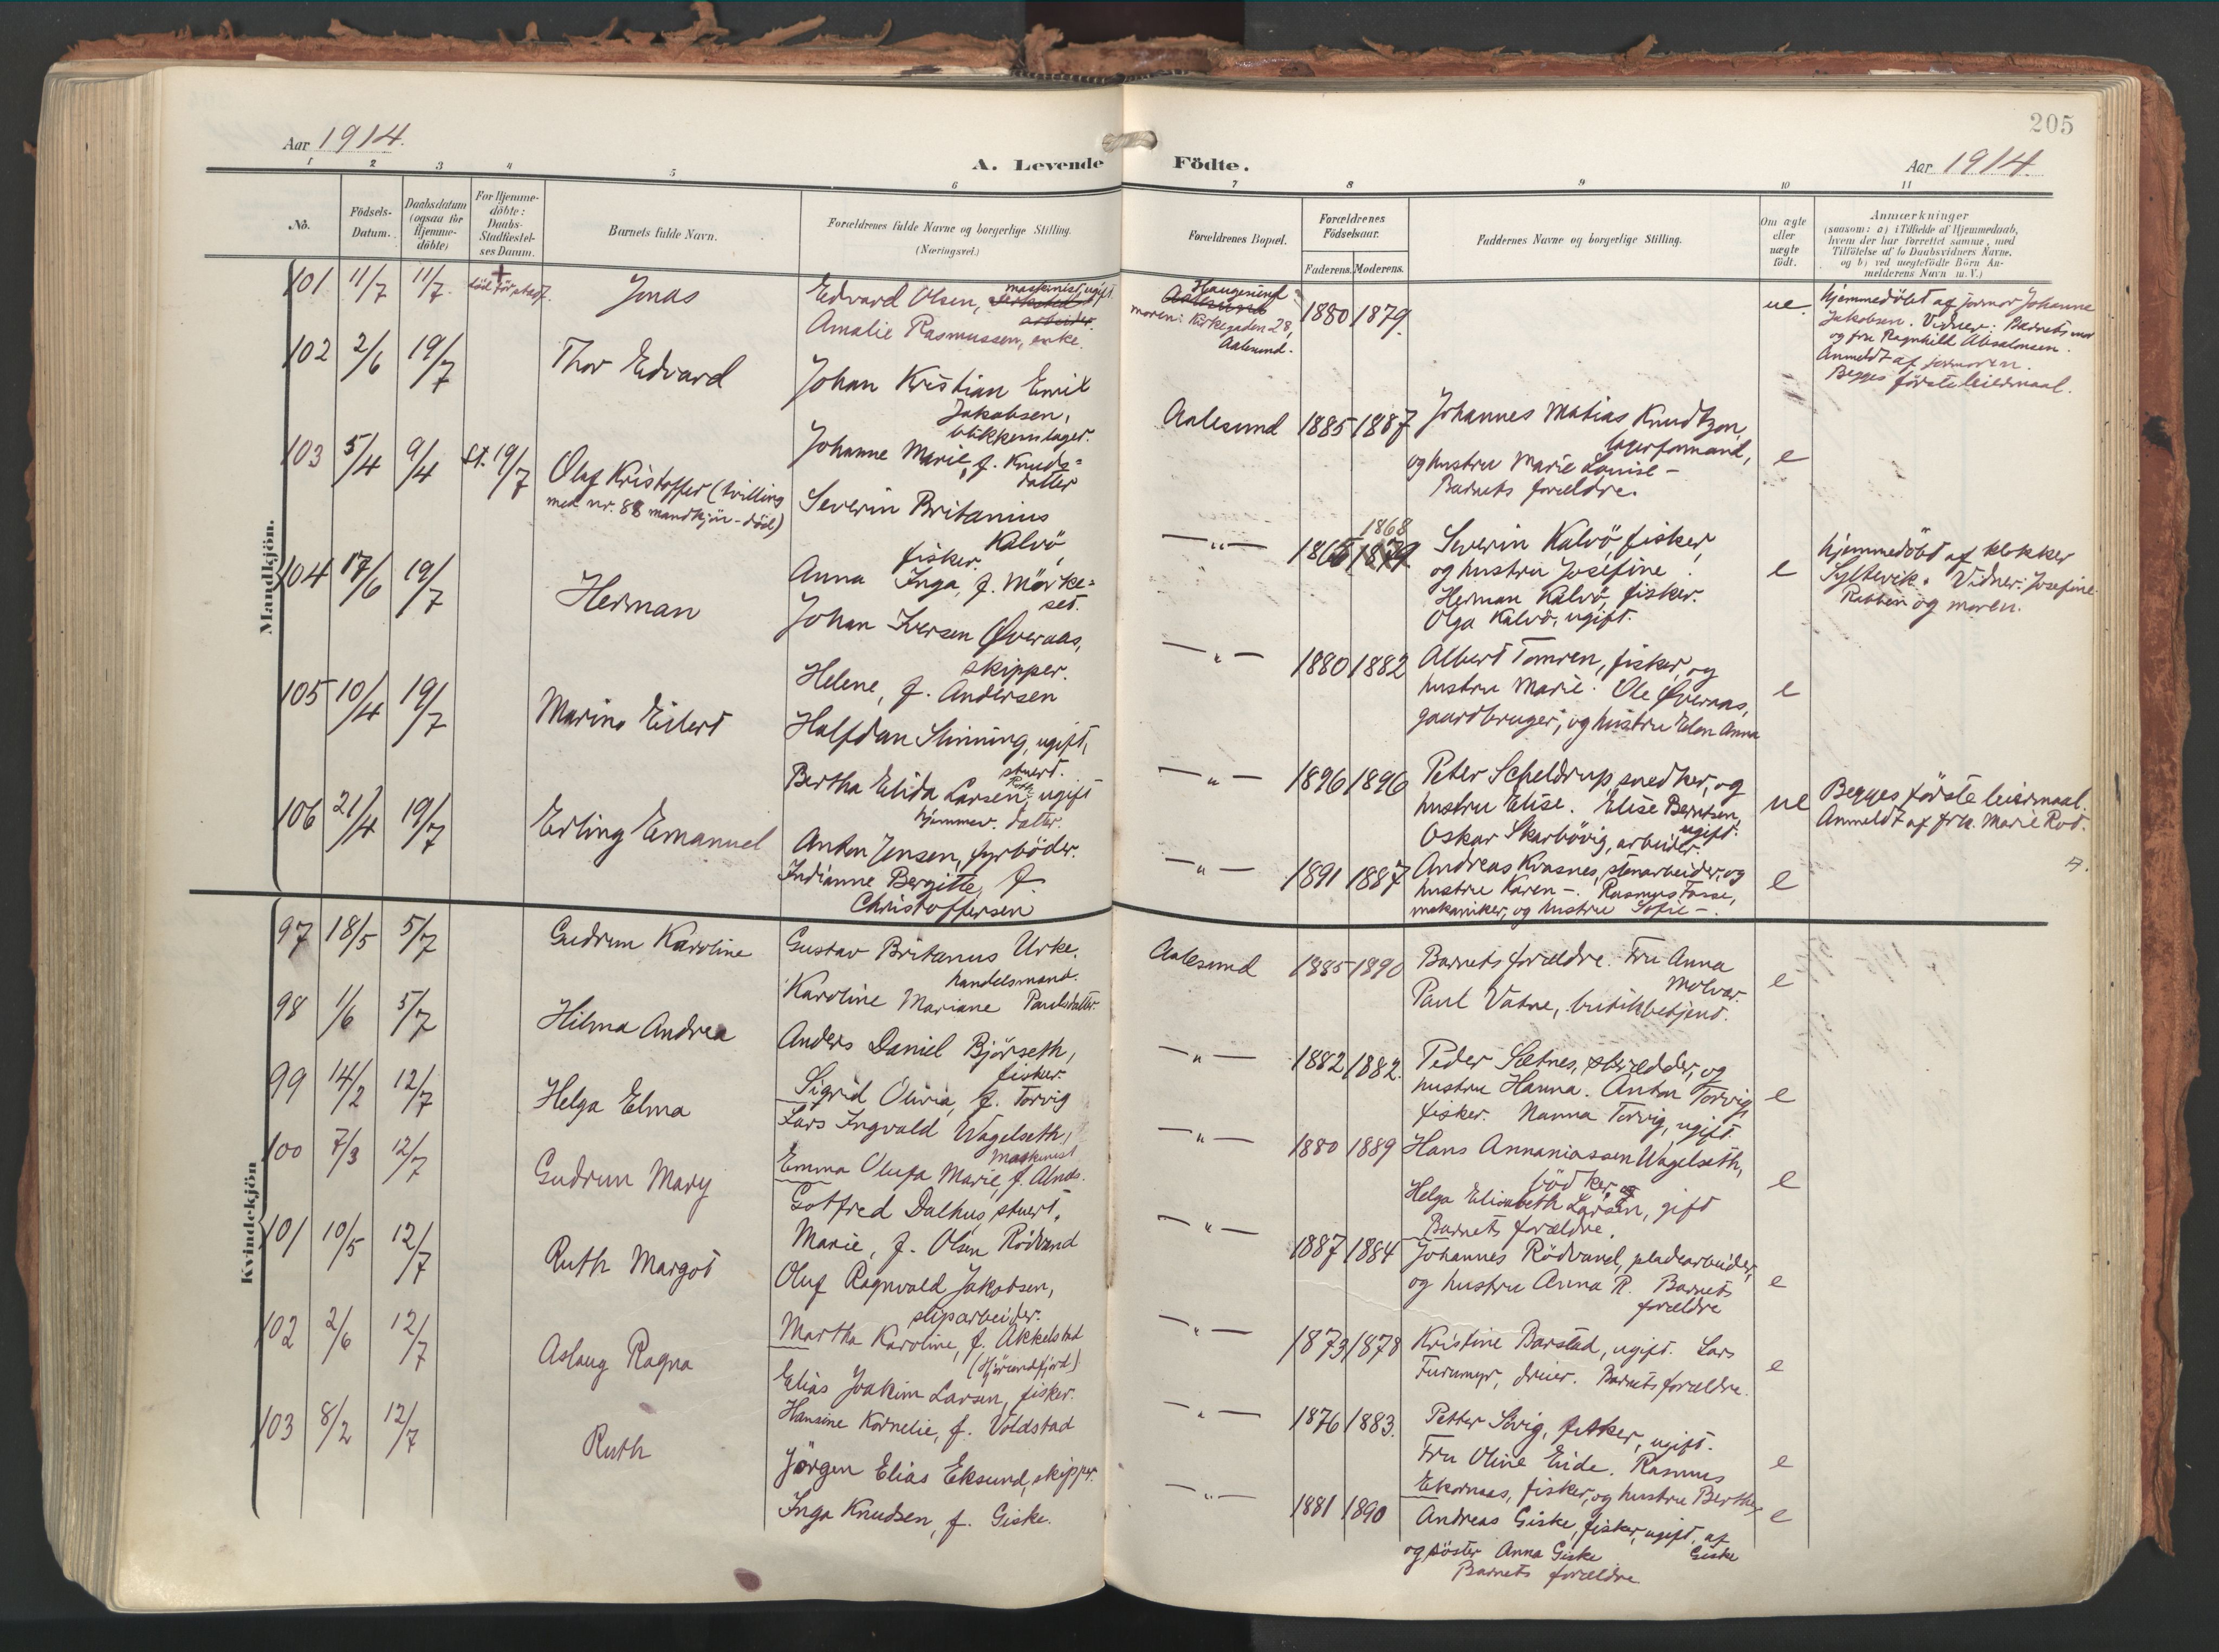 205
Aar 1914.
A. Levende Födte.
Aar 1914.
1 2 3 4 5 6 7 8 9 10 11
No.
Födsels-
Datum.
Daabsdatum
(ogsaa for
Hjemme-
döbte)
For Hjemme-
döbte:
Daabs-
Stadfæstel-
ses Datum.
Barnets fulde Navn.
Forældrenes fulde Navne og borgerlige Stilling.
(Næringsvei.)
Forældrenes Bopæl.
Forældrenes
Födselsaar.
Faderens. Moderens.
Faddernes Navne og borgerlige Stilling.
Om ægte
eller
uægte
födt.
Anmærkninger
(saasom: a) i Tilfælde af Hjemmedaab,
hvem der har forrettet samme, med
Tilföielse af to Daabsvidners Navne.
og b) ved uægtefödte Börn An-
melderens Navn m. V.)
Mandkjön.
101 11/7 11/7. + död för stadf. Jonas
Edvard Olsen, maskinist, ugift.
arbeider.
Amalie Rasmussen, enke.
Haugesund
Aalesund
moren: Kirkegaden 28,
Aalesund.
1880 1879.
ue.
Hjemmedöbt af jormor Johanne
Jakobsen. Vidner: Barnets mor
og fru Ragnhild Absalonsen.
Anmeldt af jormoren.
Begges förste leiermaal.
102 2/6 19/7 Thor Edvard
Johan Kristian Emil
Jakobsen,
blikkenslager.
Johanne Marie, f. Knuds=
datter
Aalesund 1885 1887
Johannes Matias Knudtzon,
lagerformand,
og hustru Marie Louise –
Barnets forældre.
e
103 5/4 9/4 st. 19/7 Olaf Kristoffer (tvilling
med nr. 88 mandkjön - död)
Severin Britanius
Kalvö,
fisker.
Anna Inga, f. Mörke=
set.
— " — 1865 1868 1879
Severin Kalvö, fisker,
og hustru Josefine.
Herman Kalvö, fisker.
Olga Kalvö, ugift.
e
Hjemmedöbt af klokker
Syltevik. Vidner: Josefine
Rabben og moren.
104 17/6 19/7 Herman
Johan Iversen Øveraas,
skipper.
Helene, f. Andersen
— " — 1880 1882
Albert Tomren, fisker, og
hustru Marie. Ole Øveraas,
gaardbruger, og hustru Elen Anna
e
105 10/4 19/7 Marino Eilert
Halfdan Slinning, ugift,
stuert.
Bertha Elida Larsen, ugift
hjemmev. datter.
— " — 1896 1896
Peter Scheldrup, snedker, og
hustru Elise. Elise Berntsen,
ugift.
Oskar Skarbövig, arbeider.
ue
Begges förste leiermaal.
Anmeldt af frk. Marie Rod.
106 21/4 19/7 Erling Emanuel
Anton Jensen, fyrböder.
Indianne Bergitte, f.
Christoffersen
— " — 1891 1887
Andreas Kvasnes, stenarbeider, og
hustru Karen –. Rasmus Fosse,
mekaniker, og hustru Sofie –.
e
Kvindekjön
97 18/5 5/7 Gudrun Karoline
Gustav Britanus Urke.
handelsmand.
Karoline Mariane Paulsdatter.
Aalesund 1885 1890
Barnets forældre. Fru Anna
Molvær.
Paul Vatne, butikbetjent.
e
98 1/6 5/7 Hilma Andrea
Anders Daniel Björseth,
fisker.
Sigrid Olivia, f. Torvig
— " — 1882 1882.
Peder Sætnes, skrædder, og
hustru Hanna. Anton Torvig,
fisker. Nanna Torvig, ugift.
e
99 14/2 12/7 Helga Elma
Lars Ingvald Wagelseth,
maskinist
Emma Olufa Marie, f. Alnes.
— " — 1880 1889
Hans Annaniassen Wagelseth,
bödker, og
Helga Elisabeth Larsen, gift
Barnets forældre.
e
100 7/3 12/7 Gudrun Mary
Gotfred Dalhus, stuert.
Marie, f. Olsen Rödvand
— " — 1887 1884
Johannes Rödvand, pladearbeider,
og hustru Anna R. Barnets
forældre
e
101 10/5 12/7 Ruth Margot
Oluf Ragnvald Jakobsen,
sliparbeider.
Martha Karoline, f. Akkelstad
(Hjörundfjord)
— " — 1873 1878
Kristine Barstad, ugift. Lars
Furumyr, dreier. Barnets forældre.
e
102 2/6 12/7 Aslaug Ragna
Elias Joakim Larsen, fisker.
Hansine Kornelie, f. Voldstad
— " — 1876 1883.
Petter Sövig, fisker, ugift.
Fru Oline Eide. Rasmus
Ekornaas, fisker, og hustru Berthe,
e
103 8/2 12/7 Ruth
Jörgen Elias Eksund, skipper.
Inga Knudsen, f. Giske.
— " — 1881 1890
Andreas Giske, fisker, ugift, af
Giske
og söster Anna Giske
Barnets forældre
e